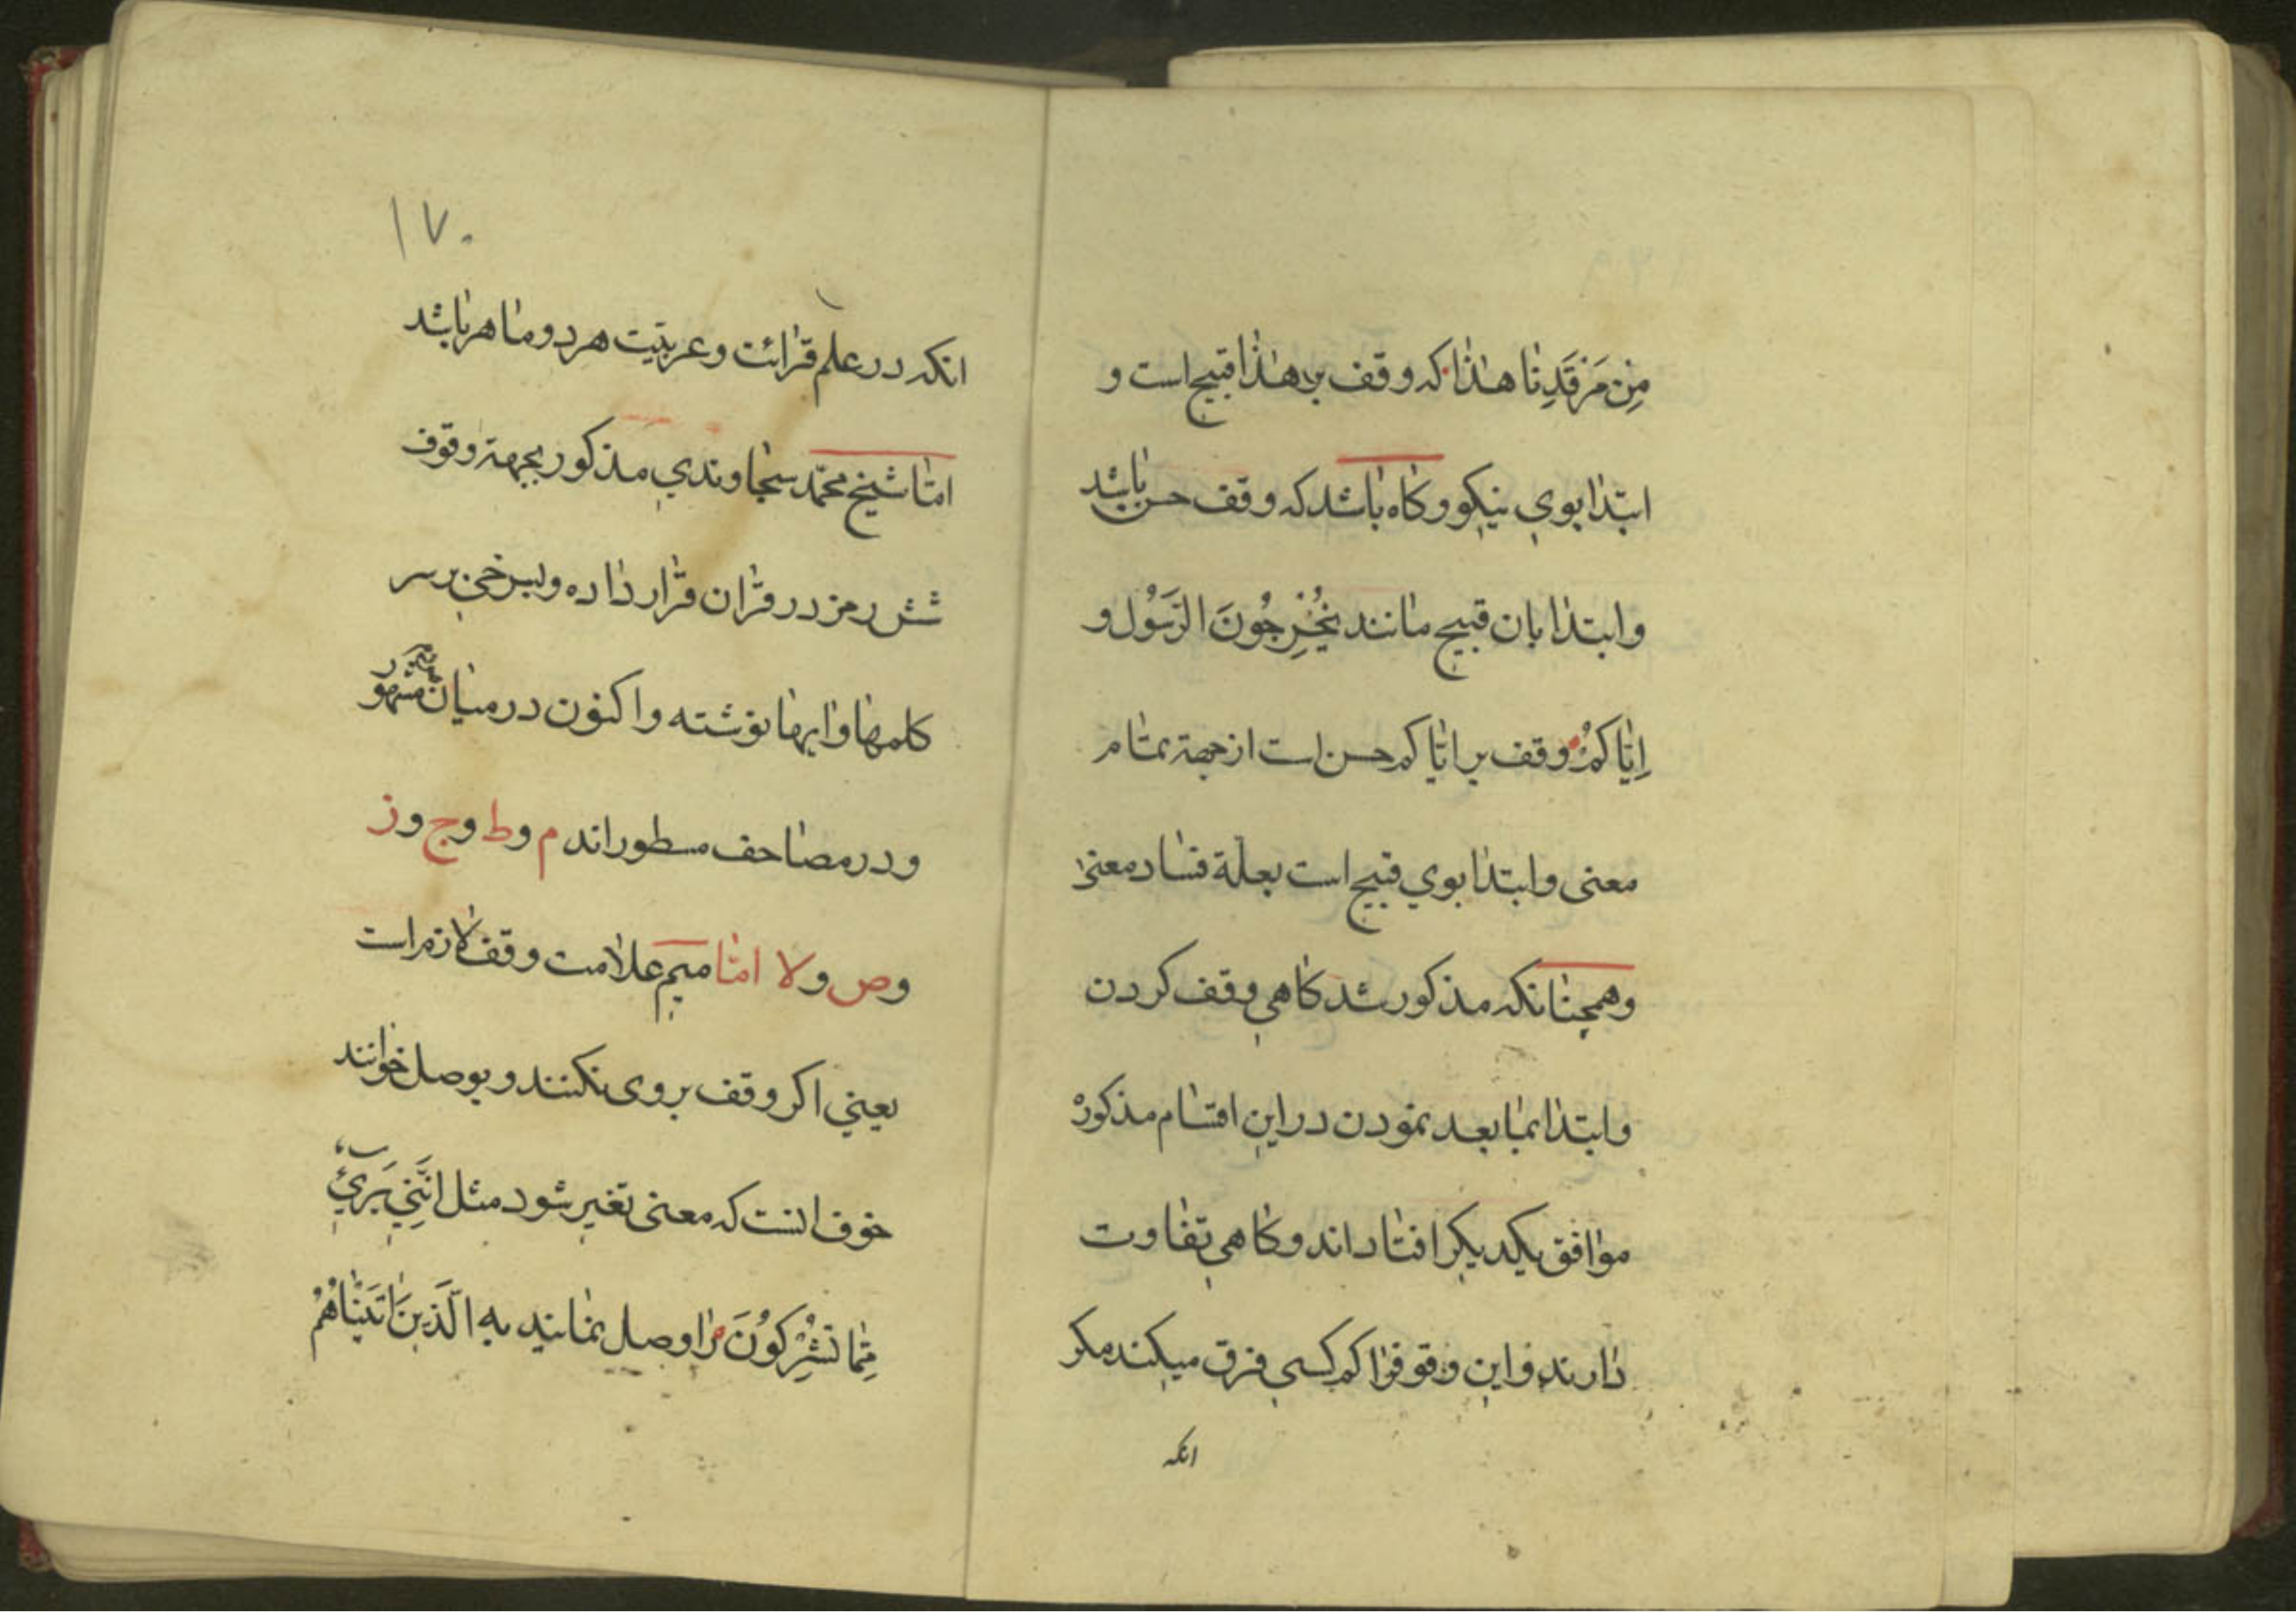 مِنْ مَرْقَدِنَا هٰذَا که وقف بر هٰذا قبیح است و
ابتدا بوي نیکو و کاه باشد که وقف حسن باشد
و ابتدا بان قبیح مانند یُخْرِجُونَ الرَّسُولَ و
اِیَّاکُمْ وقف بر ایّاکم حسن است از جهة تمام
معنی و ابتدا بوي قبیح است بعلّة فساد معنی
و همچنانکه مذکور شد کاهی وقف کردن
و ابتدا بما بعد نمودن در این اقسام مذکوره
موافق یکدیکر افتاد اند و کاهی تفاوت
دارند و این وقوفرا کم کسی فرق میکند مکر
انکه
۱۷۰
انکه در علم قرائت و عربیّت هر دو ماهر باشد
امّا شیخ محمّد سجاوندي مذکور بجهة وقوف
شش رمز در قران قرار داده و بسرخی بر سر
کلمها و ایها نوشته و اکنون در میان مشهور
و در مصاحف مسطور اند م و ط و ج و ز
و ص و لا امّا میم علامت وقف لازم است
یعنی اکر وقف بر وی نکنند و بوصل خوانند
خوف انست که معنی تغیر شود مثل اِنَّنِي بَرِيءٌ
مِمَّا تُشْرِكُونَ م را وصل نمایند به الَّذِينَ اٰتَيْنَاهُمُ